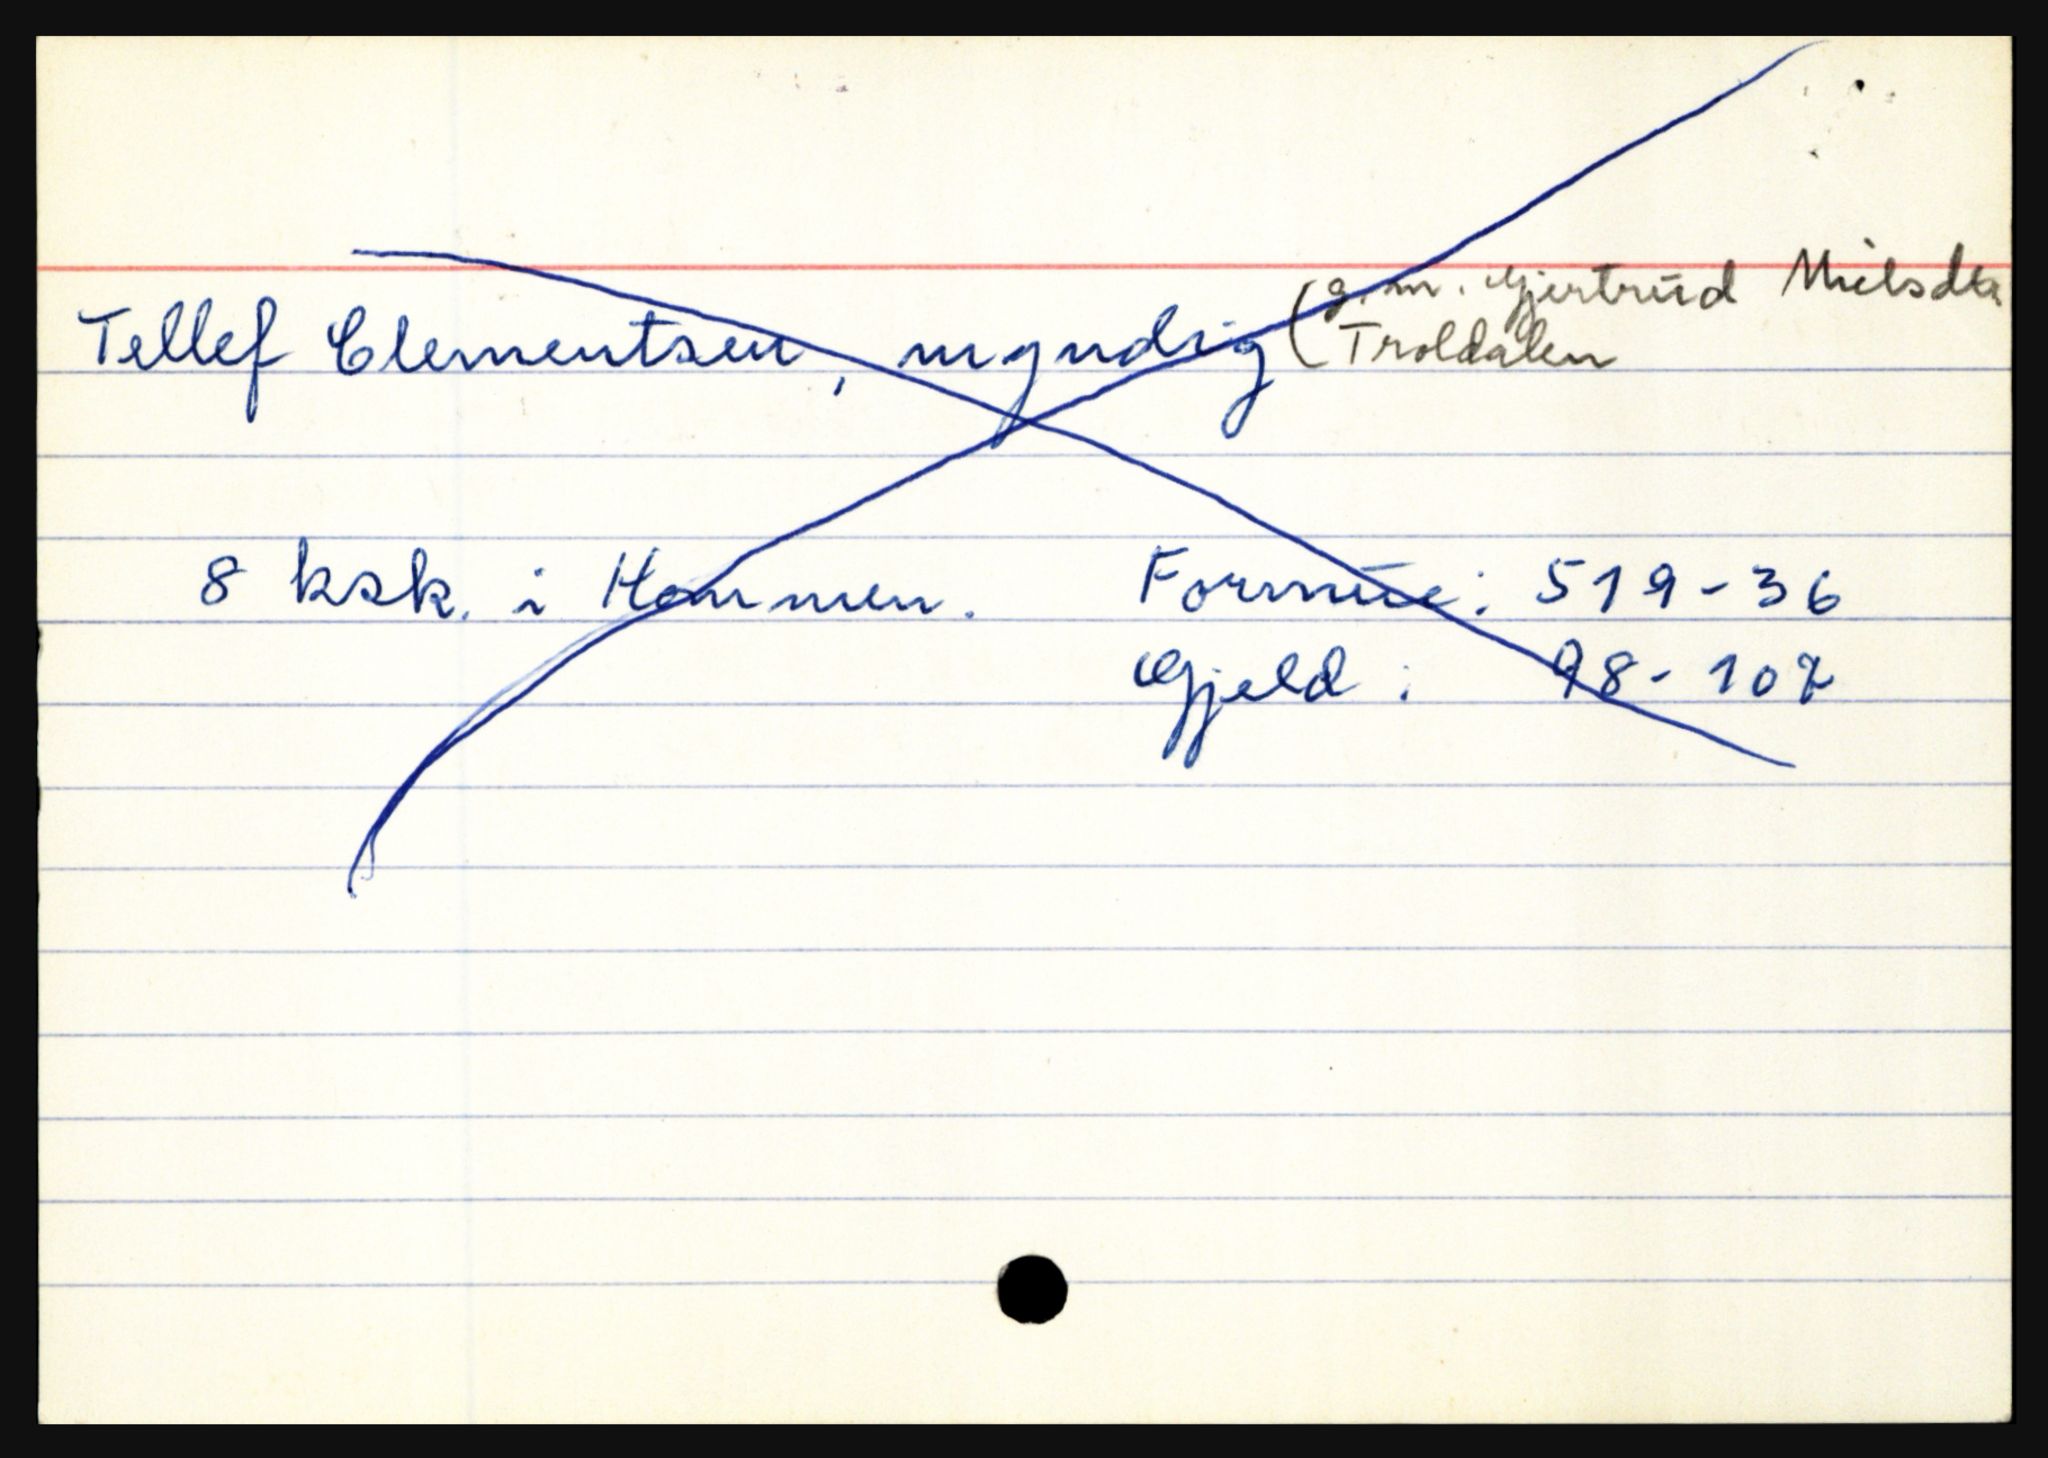 Tellef Clementsen, myndig (g.m. Gjertrud Nielsdtr
Troldalen
8 ksk. i Hommen. Formue: 519-36
Gjeld: 98-107